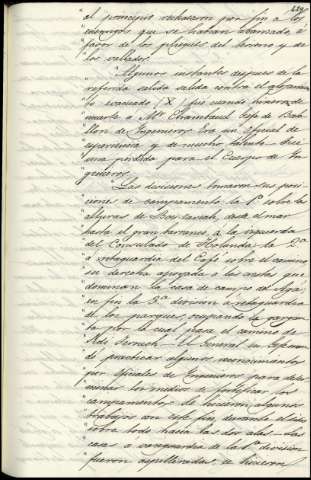 el principio rechazaron por fin a los
enemigos que se habian abanzado, á
favor de los pliegues del terreno y de
los vallados.
"Algunos instantes despues de la
referida salida contra el
evacuado (X) fue cuando hirieron de
muerte a Mr. Chambaud Gefe de Bata-
llon de Yngenieros. Era un oficial de
esperiencia y de mucho talento. Fué
una pérdida para el Cuerpo de Yn-
genieros.
"Las divisiones tomaron sus posi-
ciones de campamento la 1ª sobre las
alturas de desde el mar
hasta el gran barranco a la izquierda
del Consulado de Holanda: la 2ª
a retaguardia del Café sobre el camino
su derecha apoyada á las crestas que
dominan la casa de campo del Agá:
en fin la 3ª division á retaguardia
de los parques ocupando la gargan-
ta por la cual pasa el camino de
El General en Gefe mandó
de practicar algunos reconocimientos
por oficiales de Yngenieros para deter-
minar los medios de fortificar los
campamentos: se hicieron algunos
trabajos con este fin, durante el dia
sobre todo hacia las dos alas. Las
casas á vanguardia de la 1ª division
fueron aspilleradas: se hicieron